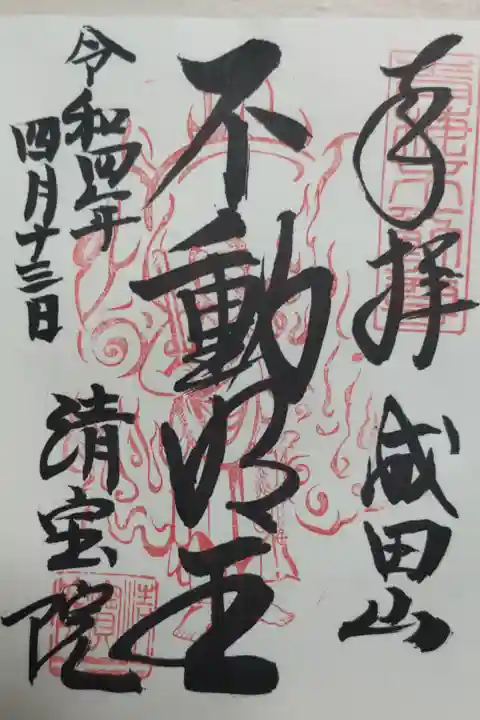 奉拝
成田山
不動明王
令和四年
四月十三日
清宝院